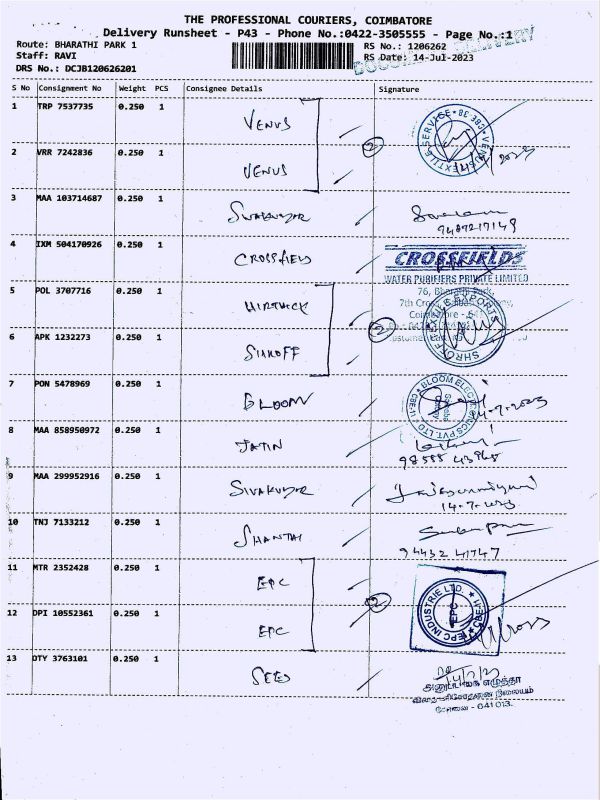 THE PROFESSIONAL COURIERS, COIMBATORE
Delivery Runsheet - P43 - Phone No.:0422-3505555 - Page No.:1
Route: BHARATHI PARK 1
RS No.: 1206262
Staff: RAVI
RS Date: 14-Jul-2023
DRS No.: DCJB120626201
DELIVERY
S No Consignment No Weight PCS Consignee Details Signature
1 TRP 7537735 0.250 1 VENUS
VENUS TEXTILE SERVICE CBE 38
2 VRR 7242836 0.250 1 VENUS
2
3 MAA 103714687 0.250 1 SIVAKUMAR
9487217149
4 IXM 504170926 0.250 1 CROSSFIELDS
CROSSFIELDS
WATER PURIFIERS PRIVATE LIMITED
76, Bharathi Park,
7th Cross
5 POL 3707716 0.250 1
2
6 APK 1232273 0.250 1 SHROFF
SHROFF EXPORTS
7 PON 5478969 0.250 1 BLOOM
BLOOM ELECTRONICS PVT. LTD CBE-11
14-7-2023
8 MAA 858950972 0.250 1 JATIN
98555
9 MAA 299952916 0.250 1 SIVAKUMAR
14-7-2023
10 TNJ 7133212 0.250 1 SHANTHI
94432 41747
11 MTR 2352428 0.250 1 EPC
2
EPC INDUSTRIE LTD. CBE-11
EPC
12 DPI 10552361 0.250 1 EPC
13 OTY 3763101 0.250 1 SEEDS
14/7/23
நிலையம்
கோவை - 641 013.